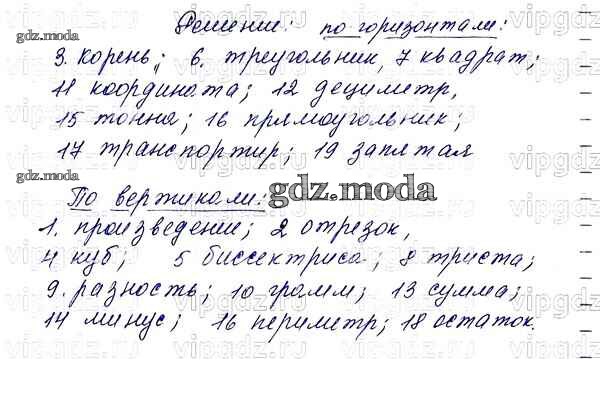 Решение: по горизонтали:
3. корень; 6. треугольник, 7 квадрат;
11 координата; 12 дециметр,
15 тонна; 16 прямоугольник;
17 транспортир; 19 запятая
По вертикали:
1. произведение; 2 отрезок,
4 куб; 5 биссектриса; 8 триста;
9. разность; 10 грамм; 13 сумма;
14 минус; 16 периметр; 18 остаток.
gdz.moda
gdz.moda
gdz.moda
gdz.moda
vipgdz.ru